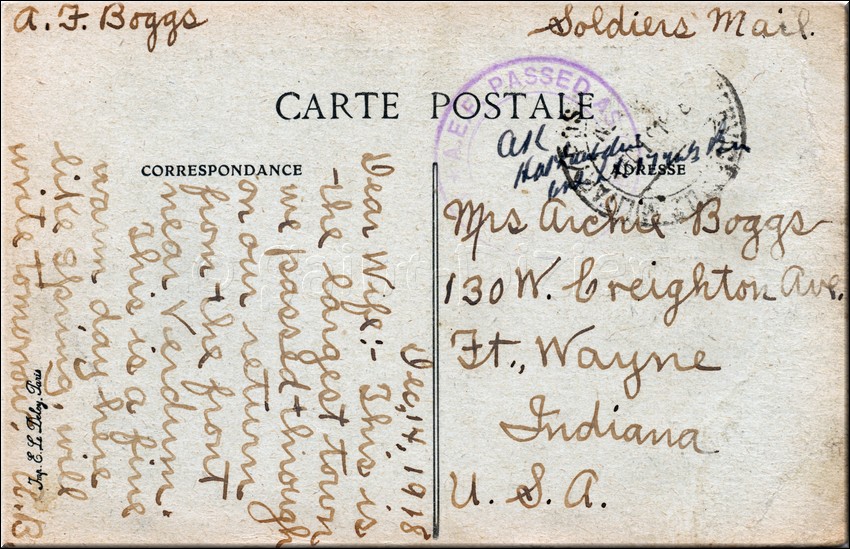 A. F. Boggs
Soldiers Mail.
A.E.F. PASSED AS
CARTE POSTALE
CORRESPONDANCE
ADRESSE
Dec, 14, 1918
Dear Wife:- This is
the largest town
we passed through
on our return
from the front
near Verdun.
This is a fine
warm day here
like Spring, will
write tomorrow,
Mrs Archie Boggs
130 W. Creighton Ave.
Ft., Wayne
Indiana
U. S. A.
Imp. E. Le Deley, Paris